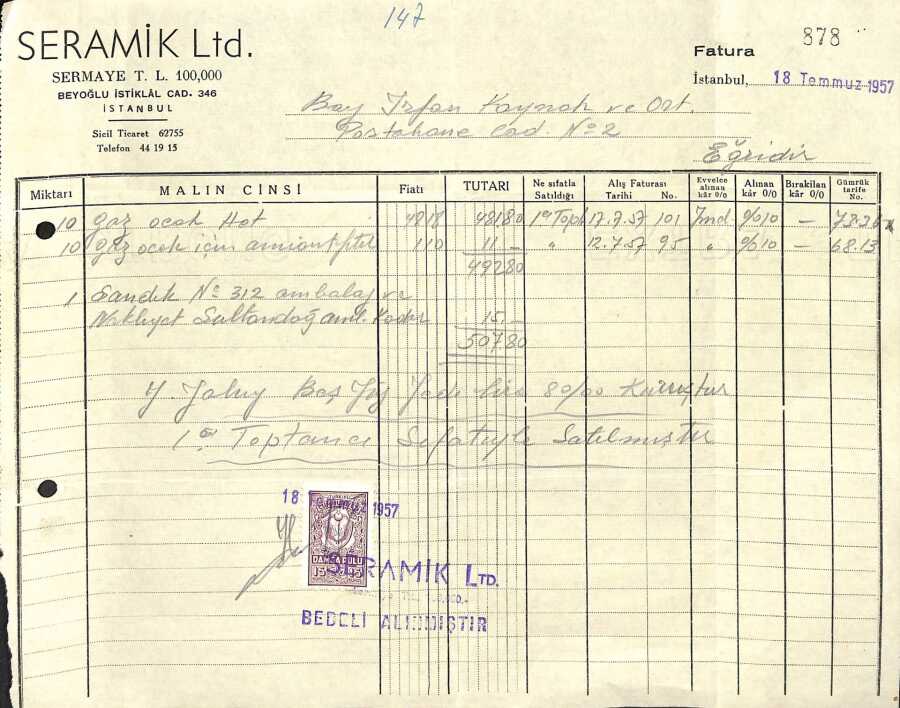 147
SERAMİK Ltd.
SERMAYE T. L. 100,000
BEYOĞLU İSTİKLÂL CAD. 346
İSTANBUL
Sicil Ticaret 62755
Telefon 44 19 15
Fatura 878
İstanbul, 18 Temmuz 1957
Bay İrfan Kaynak ve Ort.
Postahane Cad. No 2
Eğridir
Miktarı MALIN CİNSİ Fiatı TUTARI Ne sıfatla Satıldığı Alış Faturası Tarihi No. Evvelce alınan kâr 0/0 Alınan kâr 0/0 Bırakılan kâr 0/0 Gümrük tarife No.
10 gaz ocak Hot 4818 48180 1ci Topt. 17.7.57 101 İmd. %10 — 73.36
10 gaz ocak için amiant fitil 110 11 — " 12.7.57 95 " %10 — 68.13
49280
1 Sandık No 312 ambalaj ve
Nakliyet 15 —
50780
Y. Yalnız Beş Yüz Yedi lira 80/00 Kuruştur
1ci Toptancı Sıfatıyle Satılmıştır
18 Temmuz 1957
DAMGA PULU
15 15
SERAMİK LTD.
BEDELİ ALINMIŞTIR